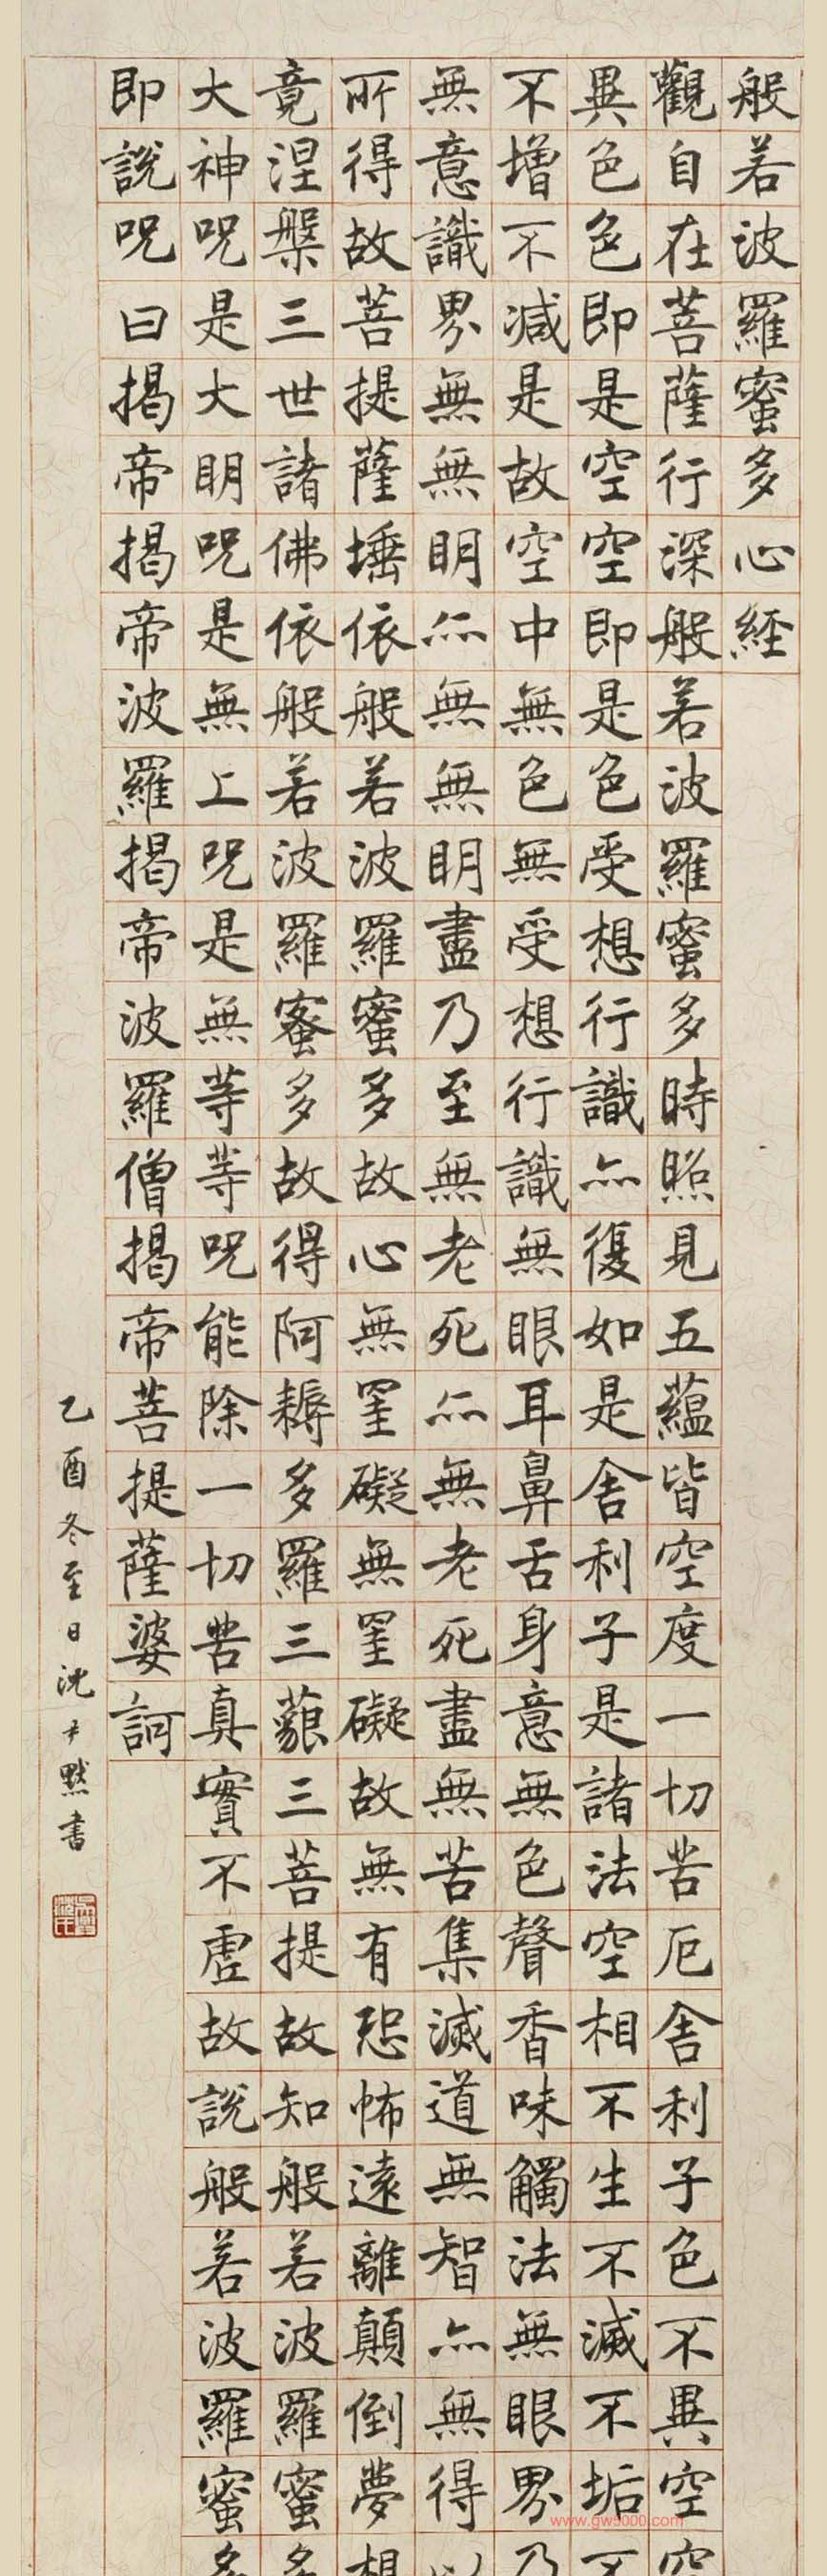 般若波羅蜜多心經
觀自在菩薩行深般若波羅蜜多時照見五蘊皆空度一切苦厄舍利子色不異空空
異色色即是空空即是色受想行識亦復如是舍利子是諸法空相不生不滅不垢不
不增不减是故空中無色無受想行識無眼耳鼻舌身意無色聲香味觸法無眼界乃
無意識界無無明亦無無明盡乃至無老死亦無老死盡無苦集滅道無智亦無得以
所得故菩提薩埵依般若波羅蜜多故心無罣礙無罣礙故無有恐怖遠離顛倒夢想
竟涅槃三世諸佛依般若波羅蜜多故得阿耨多羅三藐三菩提故知般若波羅蜜多
大神呪是大明呪是無上呪是無等等呪能除一切苦真實不虛故說般若波羅蜜多
即說呪曰揭帝揭帝波羅揭帝波羅僧揭帝菩提薩婆訶
乙酉冬至日沈尹默書
www.gw5000.com